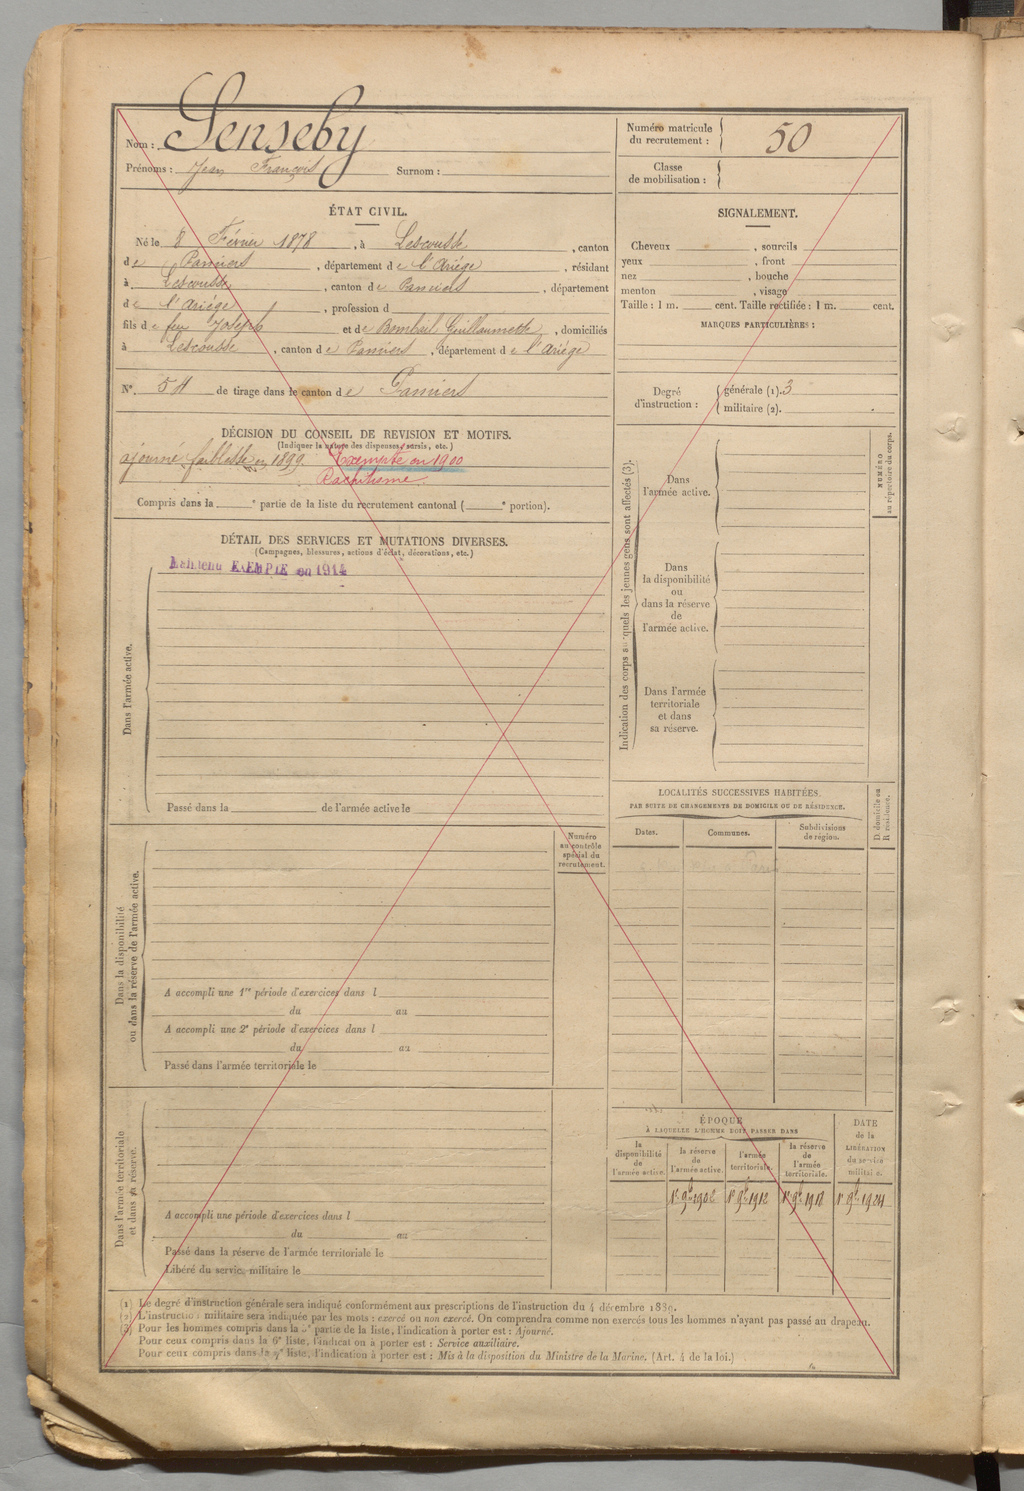 Nom : Senseby
Prénoms : Jean François Surnom :
Numéro matricule du recrutement : 50
Classe de mobilisation :
ÉTAT CIVIL.
Né le 8 Février 1878, à Lescousse, canton
de Pamiers, département de l'Ariége, résidant
à Lescousse, canton de Pamiers, département
de l'Ariége, profession d
fils de feu Joseph et de Guillaumette, domiciliés
à Lescousse, canton de Pamiers, département de l'Ariége
N°. 54 de tirage dans le canton de Pamiers
SIGNALEMENT.
Cheveux, sourcils
yeux, front
nez, bouche
menton, visage
Taille : 1 m. cent. Taille rectifiée : 1 m. cent.
MARQUES PARTICULIÈRES :
Degré d'instruction : générale (1). 3
militaire (2).
DÉCISION DU CONSEIL DE REVISION ET MOTIFS.
(Indiquer la nature des dispenses, sursis, etc.)
ajourné faiblesse en 1899. Exempté en 1900
Rachitisme.
Compris dans la e partie de la liste du recrutement cantonal ( e portion).
DÉTAIL DES SERVICES ET MUTATIONS DIVERSES.
(Campagnes, blessures, actions d'éclat, décorations, etc.)
Maintenu EXEMPTÉ en 1914
Dans l'armée active.
Passé dans la de l'armée active le
Indication des corps auxquels les jeunes gens sont affectés (3).
Dans
l'armée active.
Dans
la disponibilité
ou
dans la réserve
de
l'armée active.
Dans l'armée
territoriale
et dans
sa réserve.
NUMÉRO
au répertoire du corps.
LOCALITÉS SUCCESSIVES HABITÉES.
PAR SUITE DE CHANGEMENTS DE DOMICILE OU DE RÉSIDENCE.
Dates. Communes. Subdivisions de région.
D. domicile ou
R. résidence.
Numéro
au contrôle
spécial du
recrutement.
Dans la disponibilité
ou dans la réserve de l'armée active.
A accompli une 1re période d'exercices dans l
du au
A accompli une 2e période d'exercices dans l
du au
Passé dans l'armée territoriale le
Dans l'armée territoriale
et dans sa réserve.
A accompli une période d'exercices dans l
du au
Passé dans la réserve de l'armée territoriale le
Libéré du service militaire le
ÉPOQUE
À LAQUELLE L'HOMME DOIT PASSER DANS
la disponibilité de l'armée active.
la réserve de l'armée active.
l'armée territoriale.
la réserve de l'armée territoriale.
DATE de la LIBÉRATION du service militaire.
1er 9bre 1902 1er 9bre 1912 1er 9bre 1918 1er 9bre 1924
(1) Le degré d'instruction générale sera indiqué conformément aux prescriptions de l'instruction du 4 décembre 1889.
(2) L'instruction militaire sera indiquée par les mots : exercé ou non exercé. On comprendra comme non exercés tous les hommes n'ayant pas passé au drapeau.
(3) Pour les hommes compris dans la partie de la liste, l'indication à porter est : Ajourné.
Pour ceux compris dans la 6e liste, l'indication à porter est : Service auxiliaire.
Pour ceux compris dans la 7e liste, l'indication à porter est : Mis à la disposition du Ministre de la Marine. (Art. 4 de la loi.)